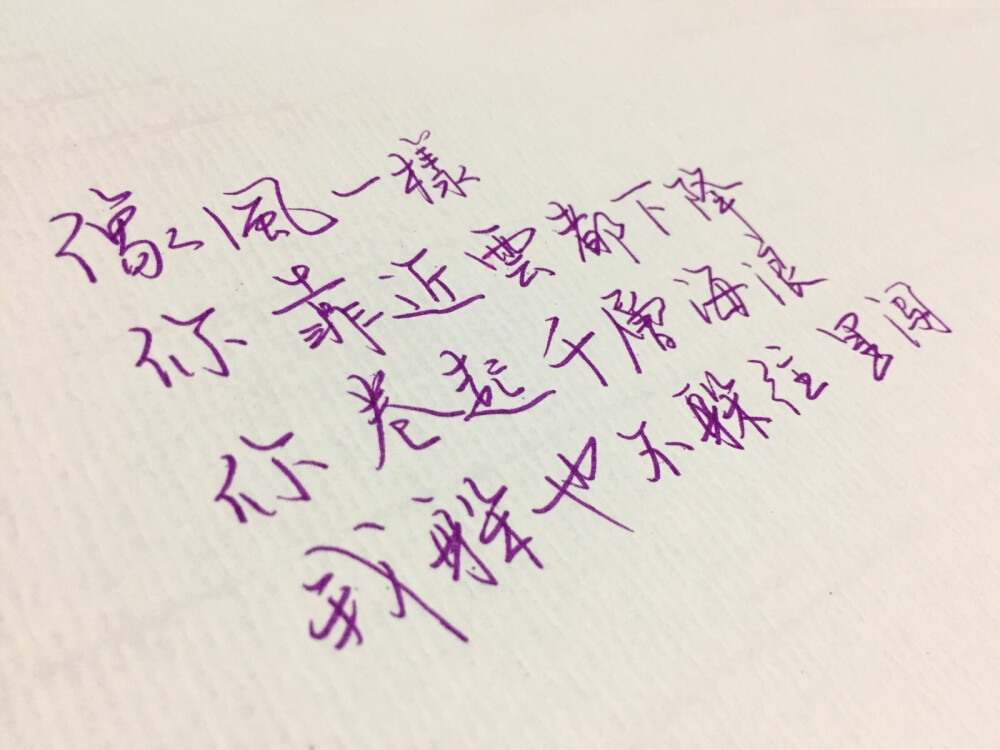 像風一樣
你靠近雲都下降
你卷起千層海浪
我躲也不躲往里闯